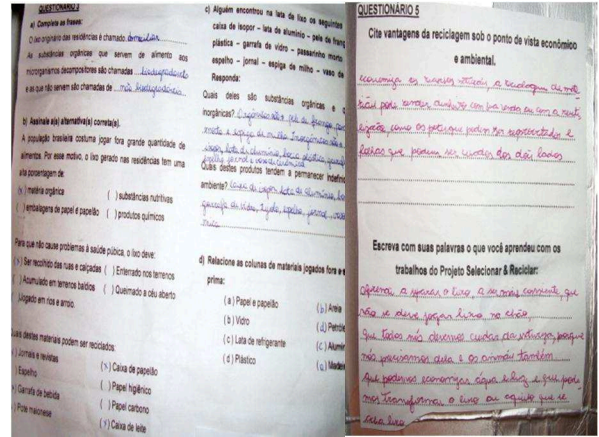 QUESTIONÁRIO 3
a) Complete as frases:
O lixo originário das residências é chamado domiciliar
As substâncias orgânicas que servem de alimento aos
microrganismos decompositores são chamadas biodegradáveis
e as que não servem são chamadas de não biodegradáveis
b) Assinale a(s) alternativa(s) correta(s).
A população brasileira costuma jogar fora grande quantidade de
alimentos. Por esse motivo, o lixo gerado nas residências tem uma
alta porcentagem de:
(x) matéria orgânica ( ) substâncias nutritivas
( ) embalagens de papel e papelão ( ) produtos químicos
Para que não cause problemas à saúde púbica, o lixo deve:
(x) Ser recolhido das ruas e calçadas ( ) Enterrado nos terrenos
( ) Acumulado em terrenos baldios ( ) Queimado a céu aberto
jogado em rios e arroio.
Quais destes materiais podem ser reciclados:
) Jornais e revistas (x) Caixa de papelão
) Espelho ( ) Papel higiênico
) Garrafa de bebida ( ) Papel carbono
) Pote maionese ( ) Caixa de leite
c) Alguém encontrou na lata de lixo os seguintes
caixa de isopor – lata de alumínio – pele de frang
plástica – garrafa de vidro – passarinho morto
espelho – jornal – espiga de milho – vaso de
Responda:
Quais deles são substâncias orgânicas e q
inorgânicas? pele de frango,
morto e espiga de milho
Quais destes produtos tendem a permanecer indefini
ambiente? caixa de isopor, lata de alumínio,
garrafa de vidro, espelho, jornal,
d) Relacione as colunas de materiais jogados fora e
prima:
(a) Papel e papelão (b) Areia
(b) Vidro (d) Petróle
(c) Lata de refrigerante (c) Alumín
(d) Plástico (a) Madei
QUESTIONÁRIO 5
Cite vantagens da reciclagem sob o ponto de vista econômico
e ambiental.
economiza os a reciclagem de
pode
como os potes que podem ser e
folhas que podem ser usadas dos dois lados
Escreva com suas palavras o que você aprendeu com os
trabalhos do Projeto Selecionar & Reciclar:
Aprendi a separar o lixo, a ser mais consciente, que
não se deve jogar lixo no chão,
que todos nós devemos cuidar da natureza, porque
nós precisamos dela e os animais também
que podemos economizar água e luz e que pode
mos transformar o lixo ou aquilo que se